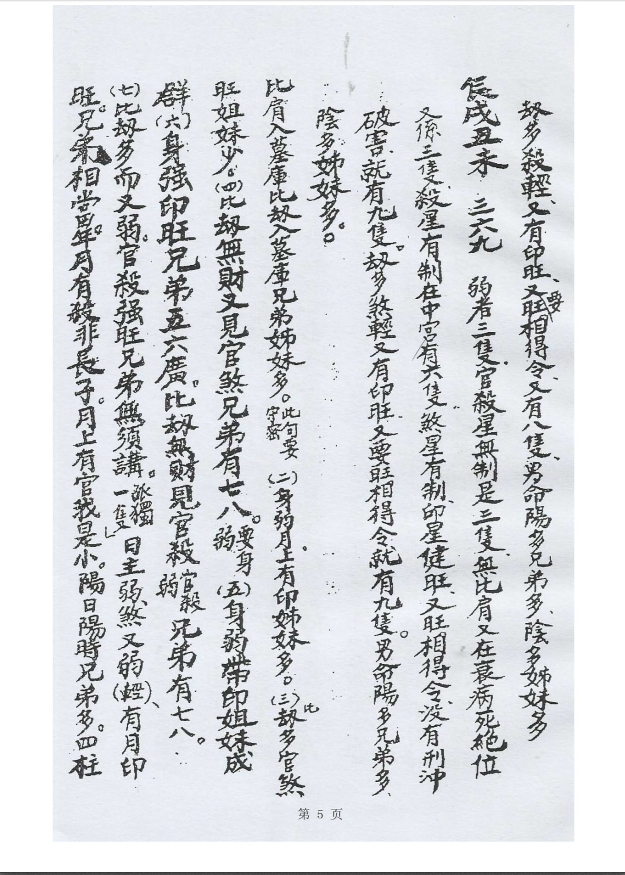 劫多殺輕、又有印旺、又要旺相得令、又有八隻、男命陽多兄弟多、陰多姊妹多
辰戌丑未 三六九 弱者三隻、官殺星無制是三隻、無比肩又在衰病死絕位
又係三隻、殺星有制在中宮有六隻、煞星有制、印星健旺、又旺相得令、没有刑沖
破害、就有九隻。劫多煞輕又有印旺、又要旺相得令、就有九隻。男命陽多兄弟多、
陰多姊妹多。
比肩入墓庫比劫入墓庫兄弟姊妹多。此句要守密(二)身弱月上有印姊妹多。(三)比劫多官煞
旺姐妹少。(四)比劫無財又見官煞兄弟有七八。要身弱(五)身弱帶印姐妹成
群(六)身强印旺兄弟五六廣。比劫無財見官殺官殺弱兄弟有七八。
(七)比劫多而又弱。官殺强旺兄弟無須講。派獨一隻」日主弱、煞又弱(輕)、有月印
旺。兄弟相當。年月有殺非長子。月上有官我是小。陽日陽時兄弟多。四柱
第 5 页